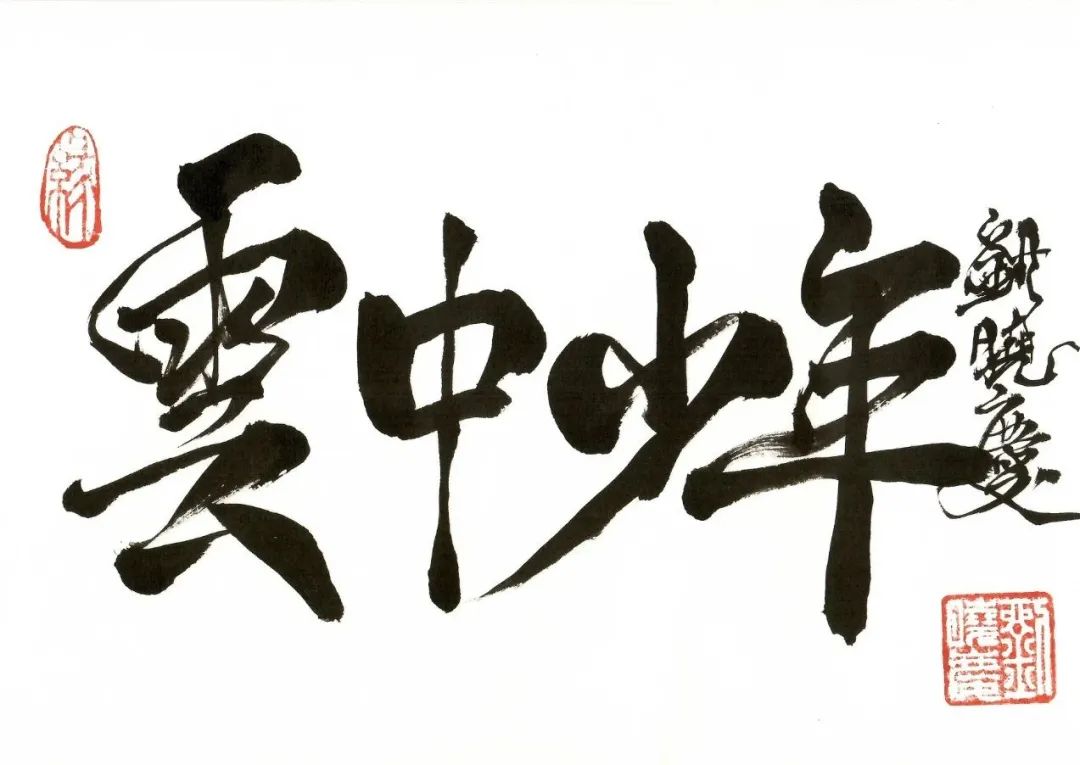 雲中少年
劉曉慶
劉曉慶